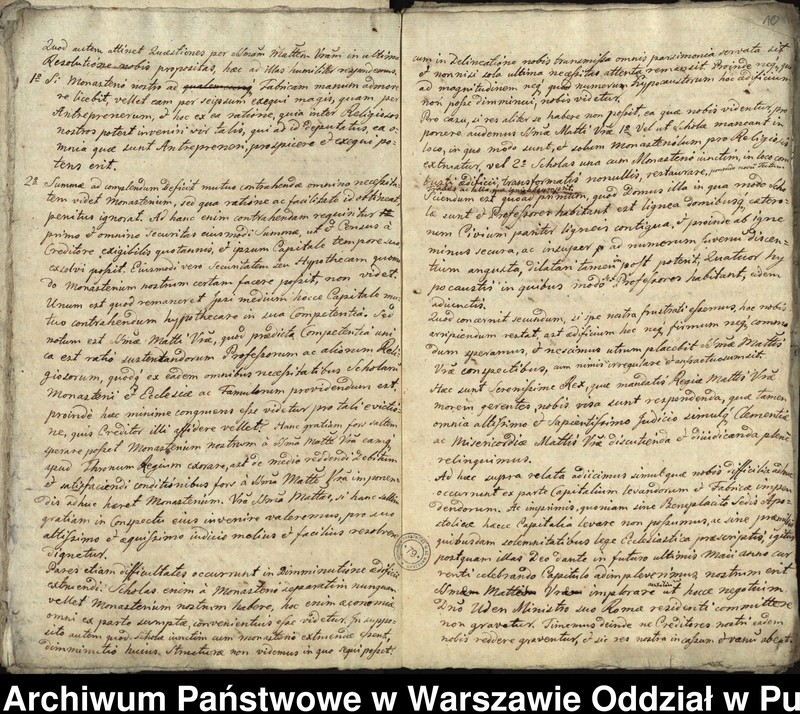 Quod autem attinet Quæstiones per Sram Mattem Vram in ultima
Resolutione nobis propositas, hæc ad illas humiliter respondemus.
1º Si Monasterio nostro ad Fabricam manum admove-
re licebit, vellet eam per seipsum exequi magis, quam per
Antreprenerum, et hoc ex ea ratione, quia inter Religiosos
nostros potest inveniri vir talis, qui ad id Deputatus, ea o-
mnia quæ sunt Antrepreneri, prospicere et exequi po-
tens erit.
2º Summæ ad complendum Deficit mutuo contrahendæ omnino necessita-
tem videt Monasterium, sed qua ratione ac facilitate id obtineat,
penitus ignorat. Ad hanc enim contrahendam requiritur
primo et omnino Securitas eiusmodi Summæ, ut et Census à
Creditore exigibilis quotannis, et ipsum Capitale tempore suo
exsolvi possit. Eiusmodi vero Securitatem seu Hypothecam quomo-
do Monasterium nostrum certam facere possit, non videt.
Unum est quod remaneret ipsi medium hocce Capitale mu-
tuo contrahendum hypothecare in sua Competentia. Sed
notum est Srnæ Matti Vræ, quod prædicta Competentia uni-
ca est ratio sustentandorum et Professorum ac aliorum Reli-
giosorum, quodq ex eadem omnibus necessitatibus Scholarum
Monasterii et Ecclesiæ ac Famulorum providendum est,
proinde hæc minime congruens esse videtur pro tali evictio-
ne, quis Creditor illi assidere vellet. Hanc gratiam fors saltem
sperare posset Monasterium nostrum à Srma Matte Vra eamq
apud Thronum Regium exorare, ast de medio reddendi Debitum
et satisfaciendi conditionibus fors à Srma Matte Vra imponen-
dis adhuc hæret Monasterium. Vra Srma Mattes, si hanc saltem
gratiam in Conspectu eius invenire valeremus, pro suo
altissimo et æquissimo iudicio melius et facilius resolvere
dignetur.
Pares etiam difficultates occurrunt in Dimminutione ædificii
extruendi. Scholas enim à Monasterio separatim nunquam
vellet Monasterium nostrum habere, hoc enim æconomiæ
omni ex parte sumptæ, convenientius esse videtur. In suppo-
sito autem quod Schola iunctim cum monasterio extruendæ essent,
dimminutio huius Structuræ non videmus in quo sequi posset.
10
cum in Delineatione nobis transmissa omnis parsimonia servata sit
et non nisi sola ultima necessitas attenta remanserit. Proinde neq, quo
ad magnitudinem neq quoad numerum hypocaustorum hoc ædificium
non posse dimminui, nobis videtur.
Pro casu, si res aliter se habere non posset, ea quæ nobis videntur, pro-
ponere audemus Srmæ Matti Vræ 1º Vel ut Scholæ maneant in
loco, in quo modo sunt, et solum Monasteriolum pro Religiosis
extruatur, vel 2º Scholas una cum Monasterio iunctim, in loco com-
busti ædificii, transformatis nonnullis, restaurare,
Sciendum est quoad primum, quod Domus illa in qua modo Scho-
læ sunt et Professores habitant est lignea domibusq cætero-
rum Civium pariter ligneis contigua, et proinde ab igne
minus secura, ac insuper ad numerum Iuvenum discen-
tium angusta, dilatari tamen post potenit, Quatuor hy-
pocaustis in quibus modo Professores habitant, eidem
adiunctis.
Quod concernit secundum, si spe nostra frustrati essemus, hoc nobis
arripiendum restat, ast ædificium hoc neq firmum neq commo-
dum speramus, et nescimus utrum placebit Srmæ Mattis
Vræ conspectibus, cum nimis irregulare et anfractuosum sit.
Hæc sunt Serenissime Rex, quæ mandatis Regiæ Mattis Vræ
morem gerentes, nobis visa sunt respondenda, quæ tamen
omnia altissimo et Sapientissimo Iudicio simulq Clementiæ
ac Misericordiæ Mattis Vræ discutienda et diiudicanda plene
relinquimus.
Ad hæc supra relata adiicimus simul quæ nobis difficilia adhuc
occurrunt ex parte Capitalium levandorum et Fabricæ impen-
dendorum. Ac imprimis, quoniam sine Beneplacito Sedis Apo-
stolicæ hæcce Capitalia levare non possumus, ac sine præmissis
quibusdam solemnitatibus lege Ecclesiastica præscriptis, igitur
postquam illas Deo dante in futuro ultimis Maii anno cur-
renti celebrando Capitulo adimpleverimus, nostrum erit
implorare ut hocce negotium
Dno Uden Ministro suo Romæ residenti committere
non gravetur. Timemus deinde ne Creditores nostri eadem
nobis reddere graventur, et sic res nostra in cassum et vanum abeat.
Archiwum Państwowe w Warszawie Oddział w Pu